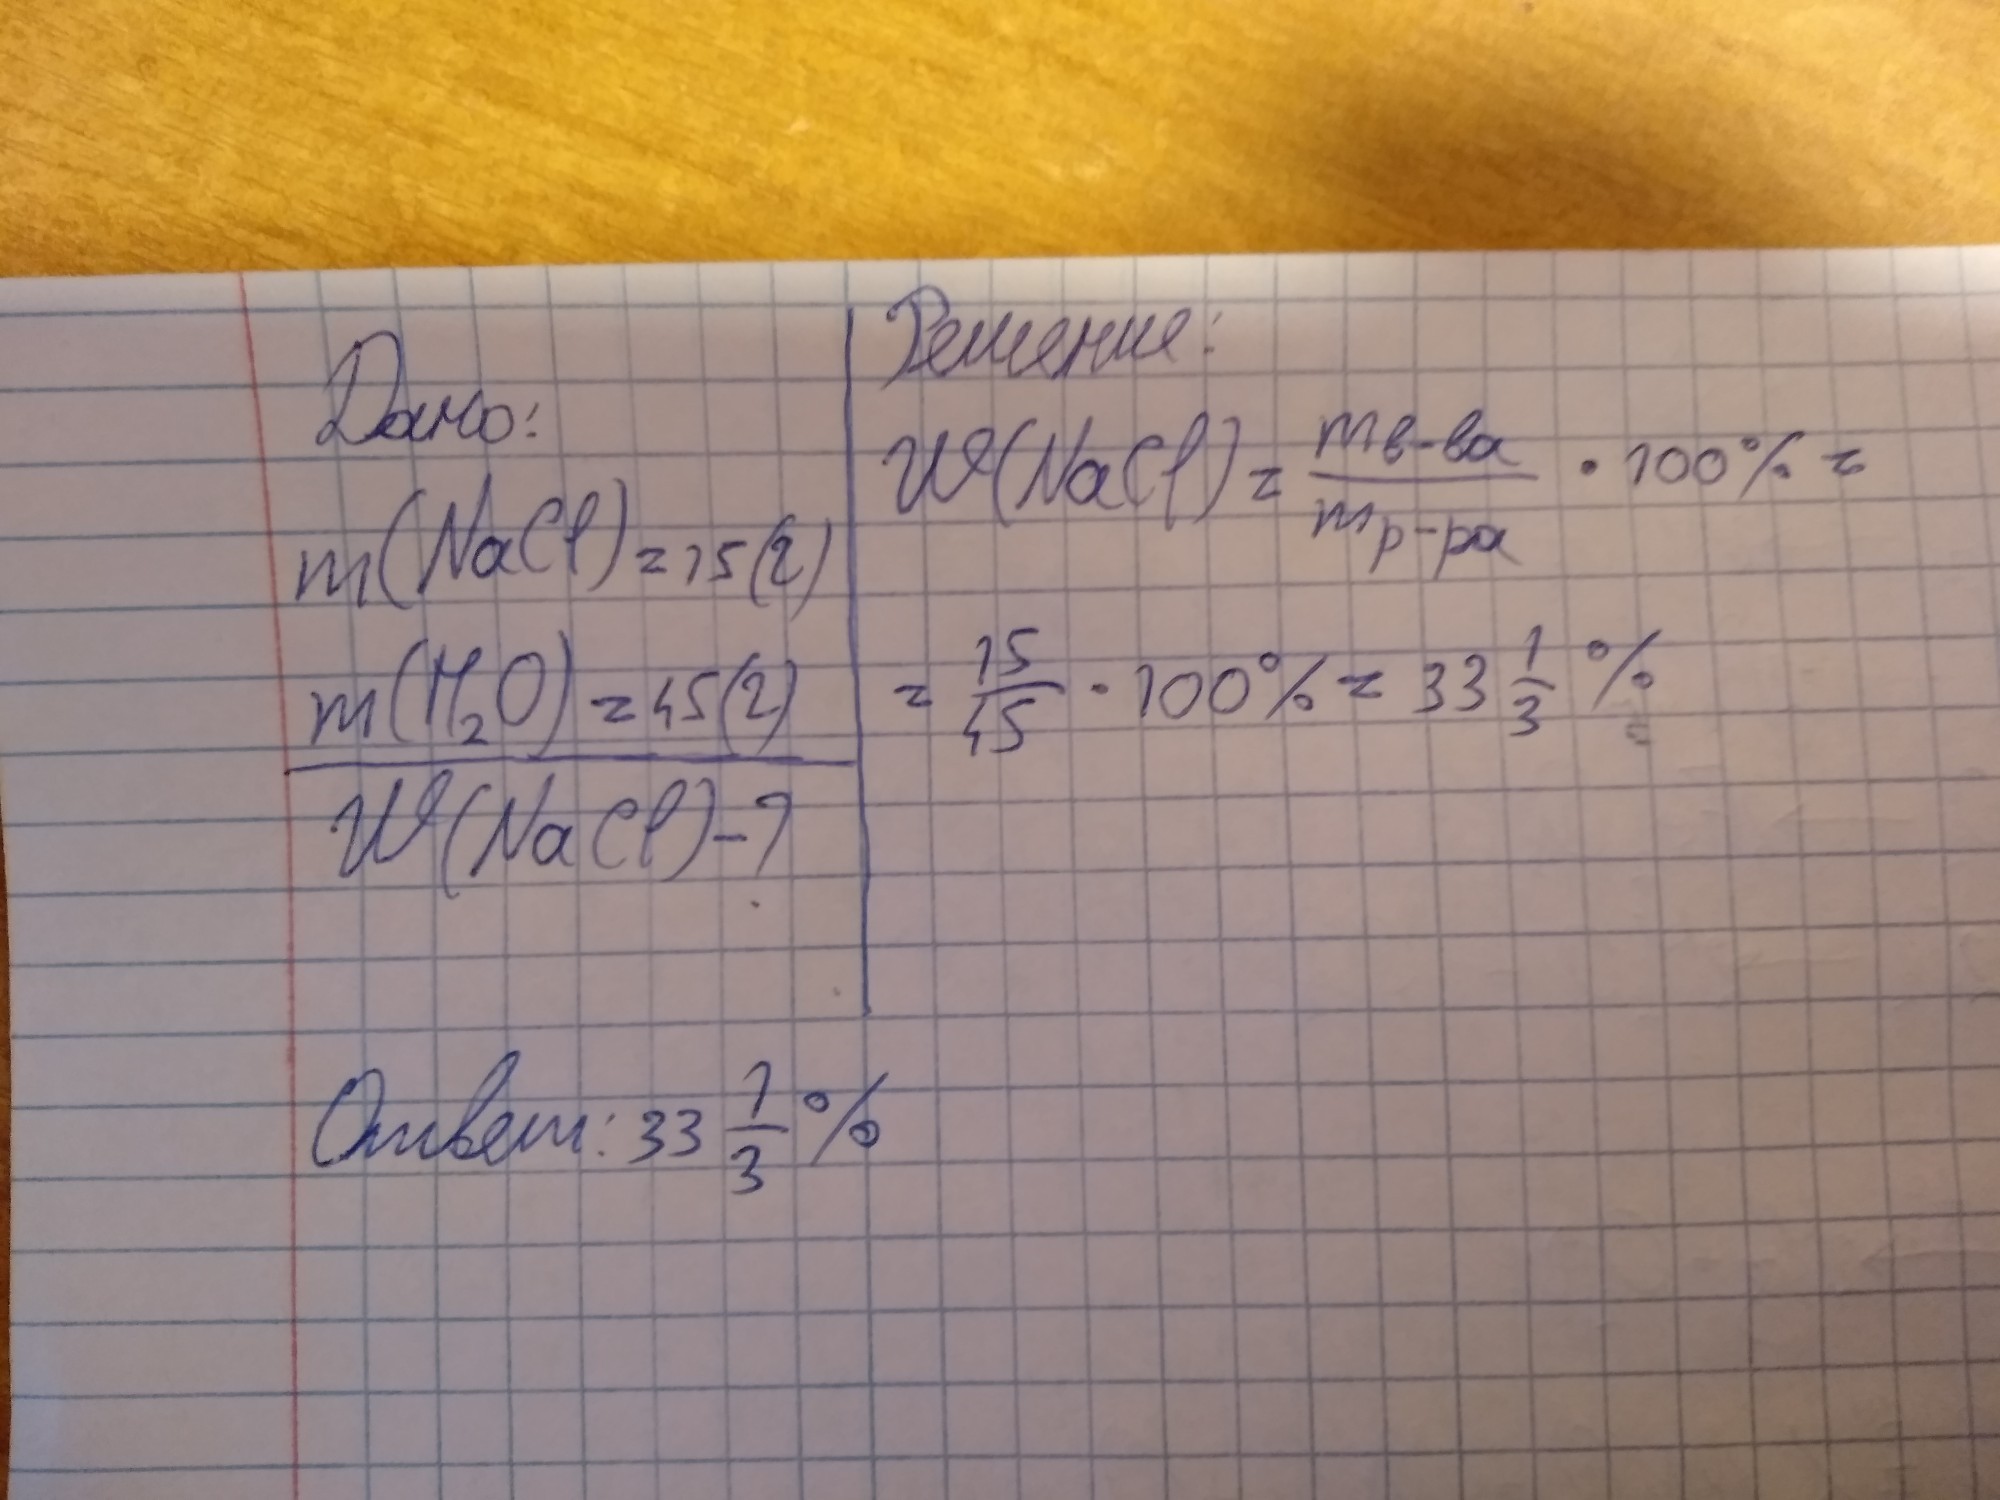 Дано:
m(NaCl)=15(г)
m(H₂O)=45(г)
W(NaCl)-?
Решение:
W(NaCl)= mв-ва/mр-ра · 100% =
= 15/45 · 100% = 33 1/3 %
Ответ: 33 1/3 %